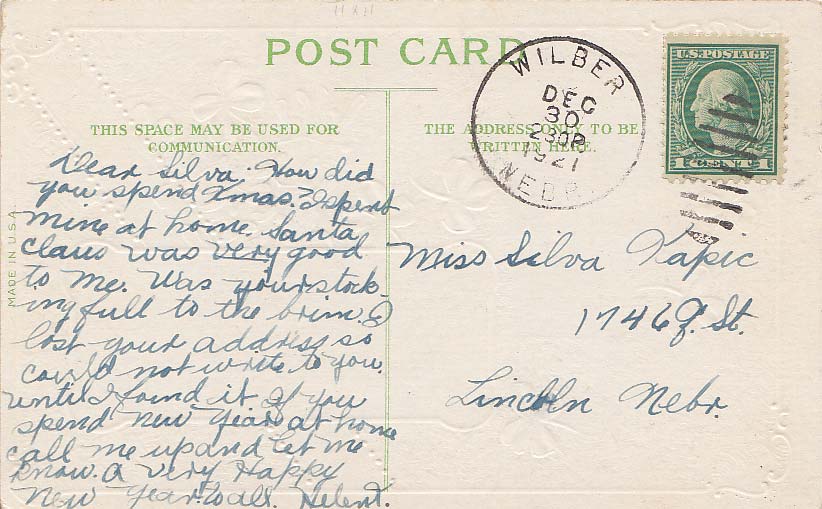 POST CARD
THIS SPACE MAY BE USED FOR
COMMUNICATION.
THE ADDRESS ONLY TO BE
WRITTEN HERE.
WILBER
DEC
30
230P
1921
NEBR.
U.S. POSTAGE
1 CENT 1
MADE IN U.S.A.
Dear Silva: How did
you spend Xmas? I spent
mine at home. Santa
Claus was very good
to me. Was your stock-
ing full to the brim. I
lost your address so
could not write to you.
until I found it. If you
spend New Year at home
call me up and let me
know. A very Happy
New Year to all. Helen T.
Miss Silva Kapic
1746 Q. St.
Lincoln Nebr.